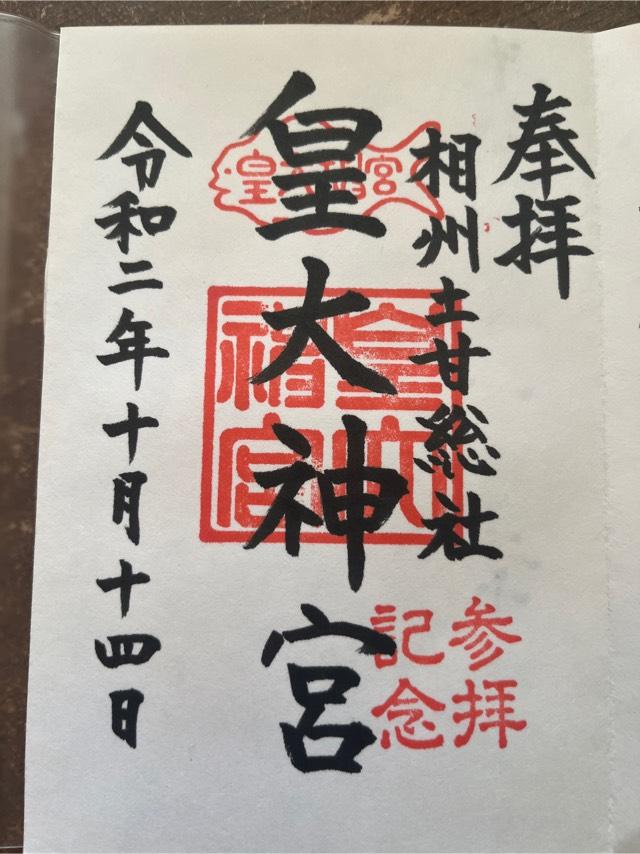 奉拝
相州土甘総社
皇大神宮
令和二年十月十四日
皇大神宮
参拝
記念